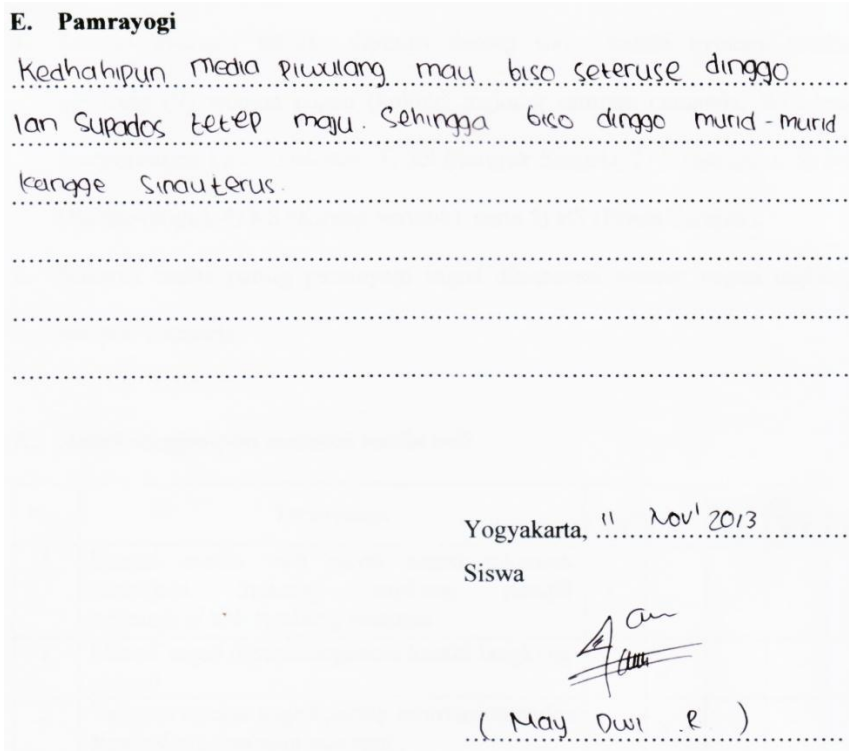 E. Pamrayogi
Kedhahipun media piwulang mau biso seteruse dinggo
lan supados tetep maju. Sehingga biso dinggo murid-murid
kangge sinau terus.
Yogyakarta, 11 Nov' 2013
Siswa
( May Dwi .R )